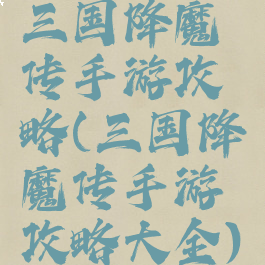 三国降魔
传手游攻
略(三国降
魔传手游
攻略大全)